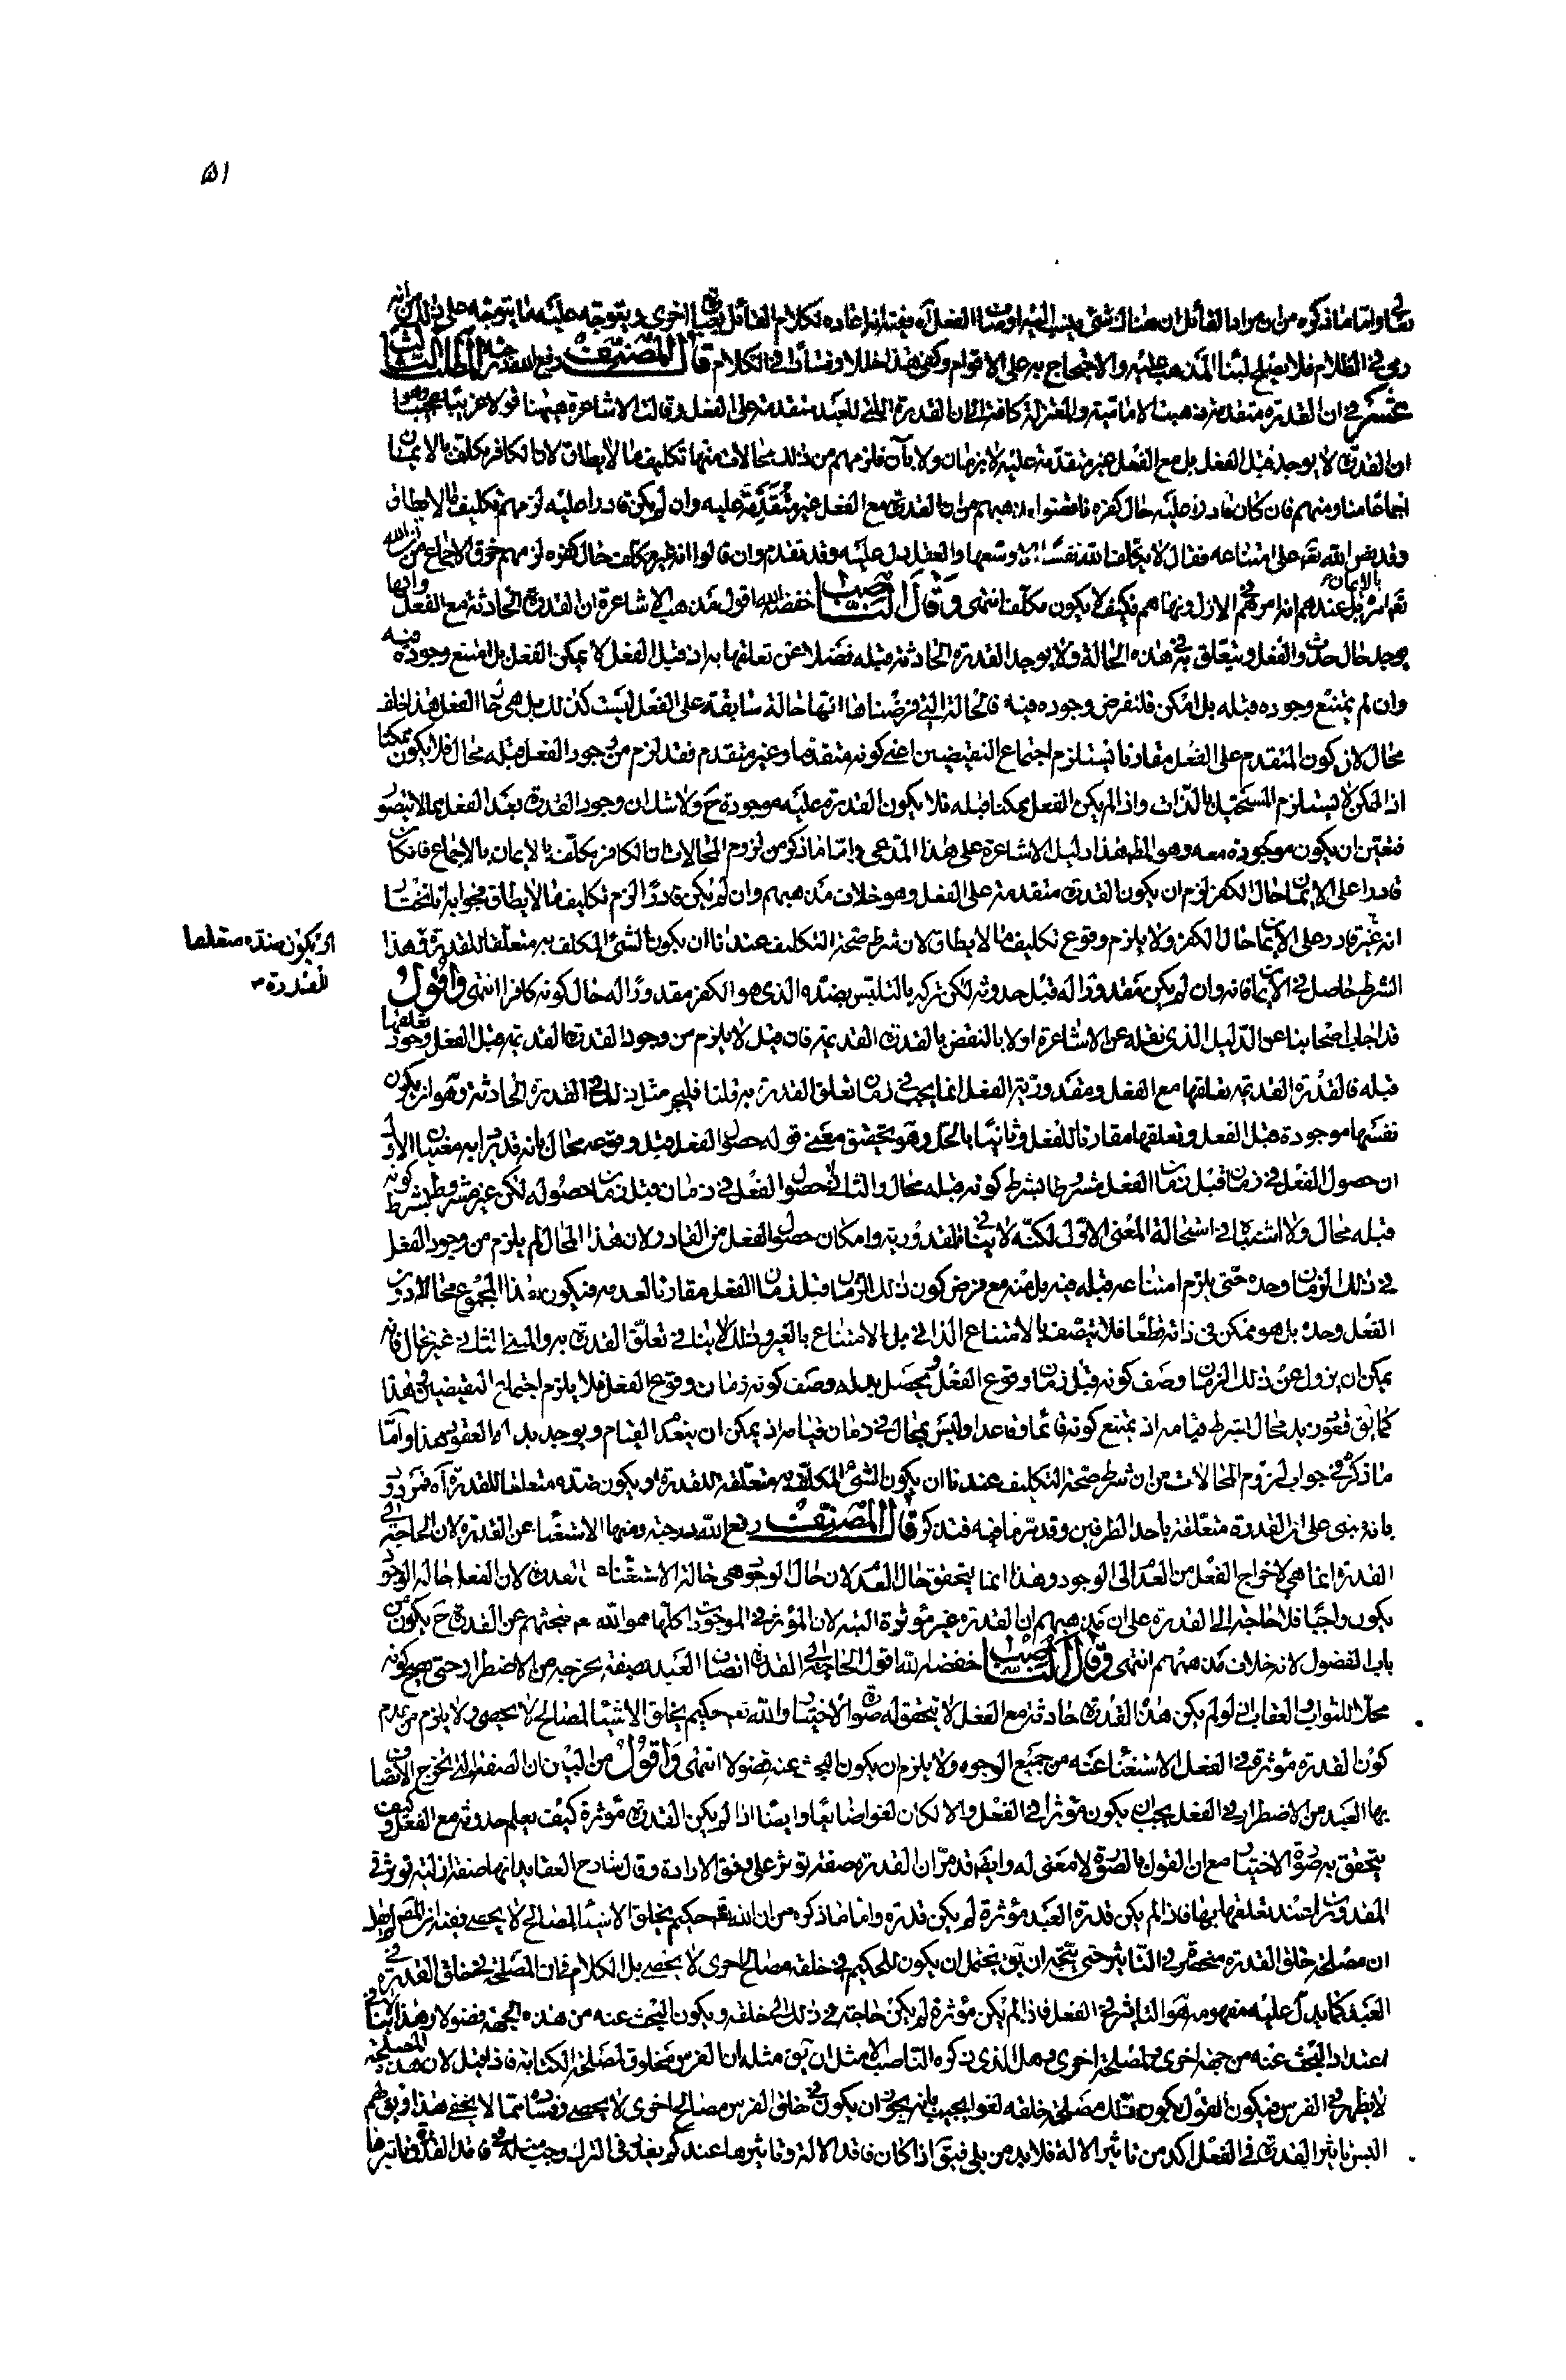 ۵۱
تعالى واما ما ذكره من ان مراد القائل ان هنا شئ ينسب اليه اوصنا الفعل آه ففيه انه اعاده لكلام القائل بعبا اخرى ويتوجه عليه ما يتوجه على ذلك من انه
رمى في الظلام فلا يصلح لبنا المذهب عليه والاحتجاج به على الاقوام وكفى بهذا خللا وفسادا في الكلام قال المصنف رفع الله درجته المطلب الثالث
عشر في ان القدرة متقدمة ذهبت الامامية والمعتزلة كافة الى ان القدرة التي للعبد متقدمة على الفعل وقالت الاشاعرة هيهنا قولا غريبا عجيبا وهو
ان القدرة لا يوجد قبل الفعل بل مع الفعل غير متقدمة عليه لا بزمان ولا بآن فلزمهم من ذلك محالات منها تكليف ما لا يطاق لان الكافر مكلف بالايمان
اجماعا منا ومنهم فان كان قادرا عليه حال كفره ناقضوا مذهبهم من ان القدرة مع الفعل غير متقدمة عليه وان لم يكن قادرا عليه لزمهم تكليف ما لا يطاق
وقد نص الله تعه على امتناعه فقال لا يكلف الله نفسا الا وسعها والعقل دل عليه وقد تقدم وان قالوا انه غير مكلف حال كفره لزمهم خرق الاجماع من ان الله
تعه امره بالايمان بل عندهم انه امرهم في الازل ونهاهم فكيف لا يكون مكلفا انتهى وقال الناصب خفضه الله اقول مذهب الاشاعرة ان القدرة الحادثة مع الفعل وانها
يوجد حال حدوث الفعل ويتعلق به في هذه الحالة ولا يوجد القدرة الحادثة قبله فضلا عن تعلقها به اذ قبل الفعل لا يمكن الفعل بل امتنع وجوده فيه
وان لم يمتنع وجوده قبله بل امكن فلنفرض وجوده فيه فالحالة التي فرضناها انها حالة سابقة على الفعل ليست كذلك بل هي حال الفعل هذا خلف
محال لان كون المتقدم على الفعل مقارنا يستلزم اجتماع النقيضين اعني كونه متقدما وغير متقدم فقد لزم من وجود الفعل قبله محال فلا يكون ممكنا
اذ الممكن لا يستلزم المستحيل بالذات واذا لم يكن الفعل ممكنا قبله فلا يكون القدرة عليه موجودة ح ولا شك ان وجود القدرة بعد الفعل مما لا يتصور
فتعين ان يكون موجودة معه وهو المط هذا دليل الاشاعرة على هذا المدعى واما ما ذكر من لزوم المحالات ان الكافر مكلف بالايمان بالاجماع فان كان
قادرا على الايمان حال الكفر لزم ان يكون القدرة متقدمة على الفعل وهو خلاف مذهبهم وان لم يكن قادرا لزم تكليف ما لا يطاق فجوابه انا نختار
انه غير قادر على الايمان حال الكفر ولا يلزم وقوع تكليف ما لا يطاق لان شرط صحة التكليف عندنا ان يكون الشئ المكلف به متعلقا للقدرة فهذا
او يكون ضده متعلقا
للقدرة
الشرط حاصل في الايمان فانه وان لم يكن مقدورا له قبل حدوثه لكن تركه بالتلبس بضده الذي هو الكفر مقدورا له حال كونه كافرا انتهى واقول
قد اجاب اصحابنا عن الدليل الذي نقله عن الاشاعرة اولا بالنقض بالقدرة القديمة فان قيل لا يلزم من وجود القدرة القديمة قبل الفعل وجود تعلقها
قبله فالقدرة القديمة تعلقها مع الفعل ومقدورية الفعل انما يجب في زمان تعلق القدرة به قلنا فليجر مثل ذلك في القدرة الحادثة وهو ان يكون
نفسها موجودة قبل الفعل وتعلقها مقارنا للفعل وثانيا بالحل وهو تحقيق معنى قوله حصول الفعل قبل وقوعه محال بانه قد يراد به معنيان الاول
ان حصول الفعل في زمان قبل زمان الفعل مشروطا بشرط كونه قبله محال والثاني حصول الفعل في زمان قبل زمان حصوله لكن غير مشروط بشرط كونه
قبله محال ولا اشتباه في استحالة المعنى الاول لكنه لا ينافي المقدورية وامكان حصول الفعل من القادر ولان هذا المحال لم يلزم من وجود الفعل
في ذلك الزمان وحده حتى يلزم امتناعه قبله فيه بل منه مع فرض كون ذلك الزمان قبل زمان الفعل مقارنا لعدمه فيكون هذا المجموع محالا دون
الفعل وحده بل هو ممكن في ذاته قطعا فلا يتصف بالامتناع الذاتي بل بالامتناع بالغير وذلك لا ينافي تعلق القدرة به والمعنى الثاني غير محال فانه
يمكن ان يزول عن ذلك الزمان وصف كونه قبل زمان وقوع الفعل ويحصل بدله وصف كونه زمان وقوع الفعل فلا يلزم اجتماع النقيضين وهذا
كما يق قعود زيد محال بشرط قيامه اذ يمتنع كونه قائما وقاعدا وليس بمحال في زمان قيامه اذ يمكن ان ينعدم القيام ويوجد بدله العقود هذا واما
ما ذكره في جواب لزوم المحالات من ان شرط صحة التكليف عندنا ان يكون الشئ المكلف به متعلقة للقدرة او يكون ضده متعلقا للقدرة آه فمردود
بانه بنى على ان القدرة متعلقة باحد الطرفين وقد مر ما فيه فتذكر قال المصنف رفع الله درجته ومنها الاستغناء عن القدرة لان الحاجة الى
القدرة انما هي لاخراج الفعل من العدم الى الوجود وهذا انما يتحقق حال العدم لان حال الوجود هي حالة الاستغناء القدرة لان الفعل حالة الوجود
يكون واجبا فلا حاجة الى القدرة على ان مذهبهم ان القدرة غير مؤثرة البتة لان المؤثر في الموجودات كلها هو الله تعه فبحثهم عن القدرة ح يكون من
باب الفضول لانه خلاف مذهبهم انتهى وقال الناصب خفضه الله اقول الحاجة الى القدرة اتصاف العبد بصفة يخرجه من الاضطرار حتى يصح كونه
محلا للثواب والعقاب اذ لو لم يكن هذه القدرة حادثة مع الفعل لا يتحقق له صورة الاختيار والله تعه حكيم يخلق الاشياء لمصالح لا يحصى ولا يلزم من عدم
كون القدرة مؤثرة في الفعل الاستغناء عنه من جميع الوجوه ولا يلزم ان يكون البحث عنه فضولا انتهى واقول من البين ان الصفة التي يخرج الاتصاف
بها العبد من الاضطرار في الفعل يجب ان يكون مؤثرا في الفعل والا لكان لغوا ضايعا وايضا اذا لم يكن القدرة مؤثرة كيف يعلم حدوثه مع الفعل وكيف
يتحقق به صورة الاختيار مع ان القول بالصورة لا معنى له وايضا قد مر ان القدرة صفة تؤثر على وفق الارادة وقال شارح العقايد انها صفة ازلية تؤثر في
المقدورات عند تعلقها بها فاذا لم يكن قدرة العبد مؤثرة لم يكن قدرة واما ما ذكره من ان الله تعه حكيم يخلق الاشياء لمصالح لا يحصى ففيه ان المص
ان مصلحة خلق القدرة منحصر في التاثير حتى يتجه ان يق يحتمل ان يكون للحكيم في خلقه مصالح اخرى لا يحصى بل الكلام في ان المصلحة في خلق القدرة في
العبد كما يدل عليه مفهومه هو التاثير في الفعل فاذا لم يكن مؤثرة لم يكن حاجة في ذلك الى خلقه ويكون البحث عنه من هذه الجهة فضولا وهذا لا ينافي
اعتداد البحث عنه من جهة اخرى ومصلحة اخرى وهل الذي ذكره الناصب الا مثل ان يق مثلا ان الفرس مخلوق لمصلحة الكتابة فاذا قيل لان هذه المصلحة
لا يظهر في الفرس فيكون القول بكون تلك مصلحة خلقه لغوا يجيب بانه يجوز ان يكون في خلق الفرس مصالح اخرى لا يحصى وفساده مما لا يخفى هذا ويق لهم
اليس تاثير القدرة في الفعل اكد من تاثير الالة فلا بد من بلى فيق اذا كان فاقد الالة وتاثيرها عندكم